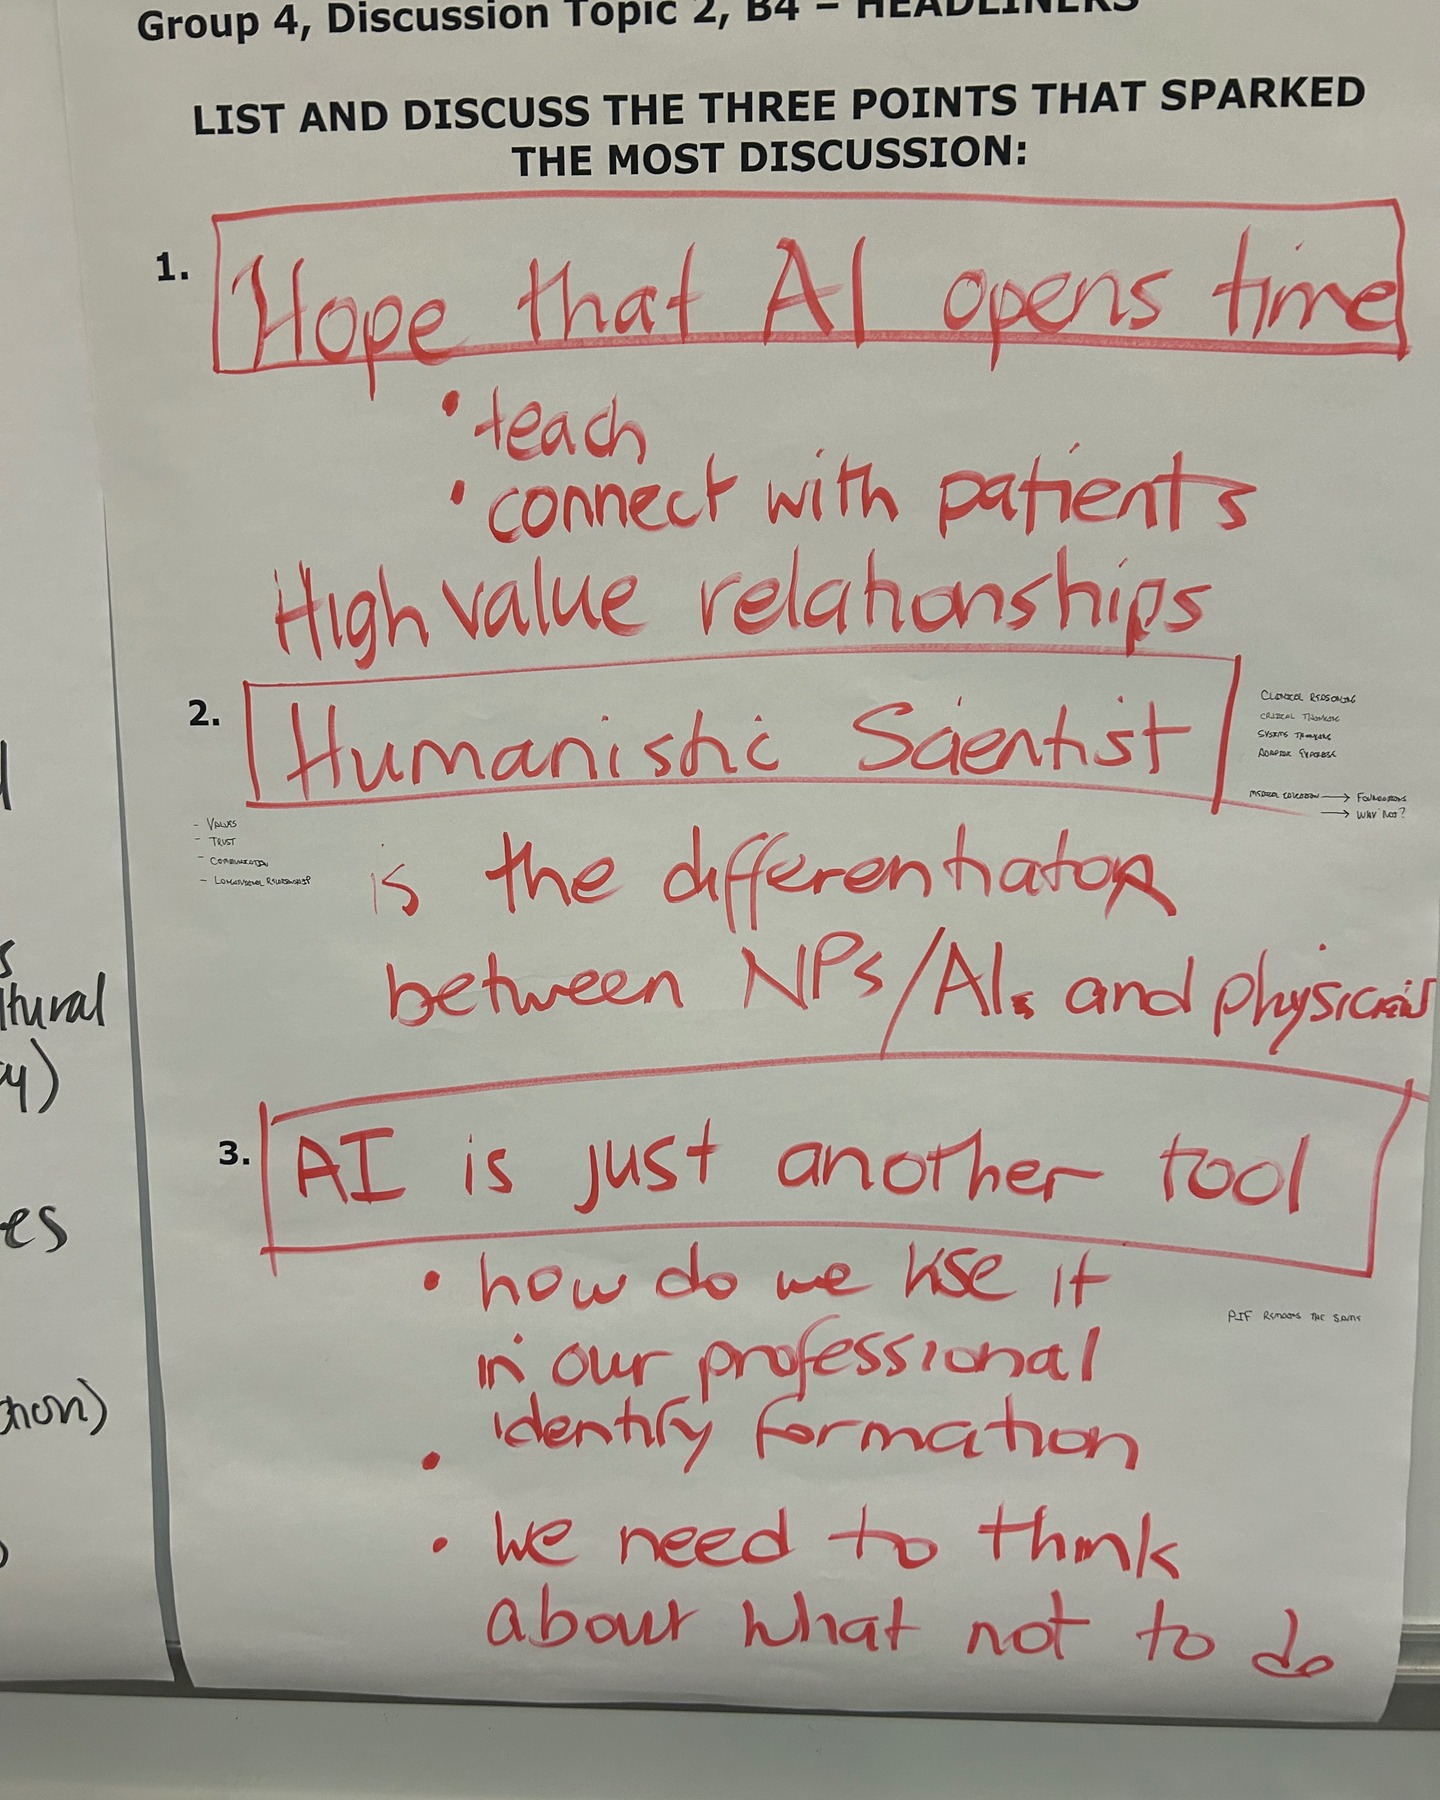 Group 4, Discussion Topic 2, B4 – HEADLINERS
LIST AND DISCUSS THE THREE POINTS THAT SPARKED
THE MOST DISCUSSION:
1. Hope that AI opens time
• teach
• connect with patients
High value relationships
2. Humanistic Scientist
CLINICAL REASONING
CRITICAL THINKING
SYSTEMS THINKING
ADAPTIVE EXPERTISE
MEDICAL EDUCATION → FOUNDATIONS
→ WHY NOT?
- VALUES
- TRUST
- COMMUNICATION
- LONGITUDINAL RELATIONSHIP
is the differentiator
between NPs/AIs and physicians
3. AI is just another tool
• how do we use it
in our professional
identity formation
PIF REMAINS THE SAME
•
• we need to think
about what not to do
ltural
es